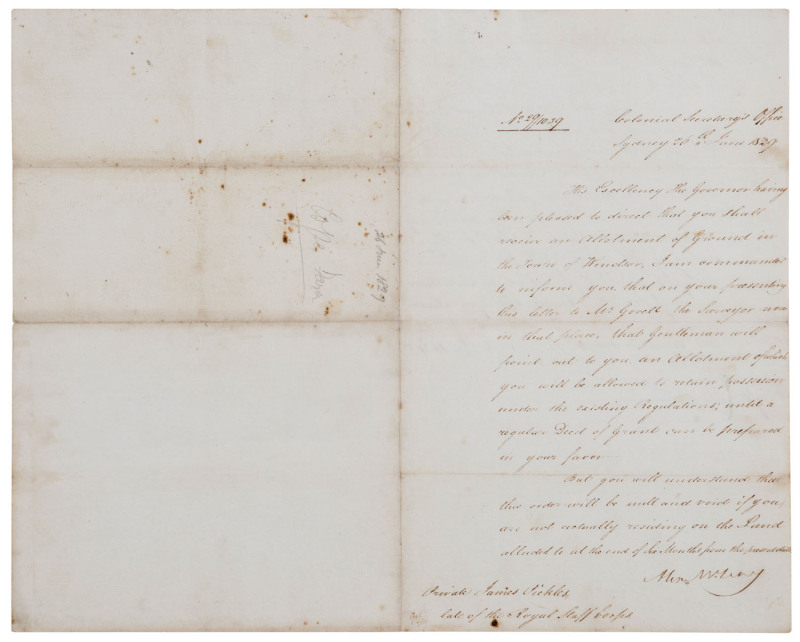 No. 29/1029
Colonial Secretary's Office
Sydney 26th June 1829
His Excellency The Governor having
been pleased to direct that you shall
receive an Allotment of Ground in
the Town of Windsor, I am commanded
to inform you that on your presenting
this letter to Mr Govett the Surveyor now
in that place, that Gentleman will
point out to you an Allotment of which
you will be allowed to retain possession
under the existing Regulations; until a
regular Deed of Grant can be prepared
in your favor
But you will understand that
this order will be null and void if you
are not actually residing on the Land
alluded to at the end of Six Months from the present date
Private James Pickles,
late of the Royal Staff Corps
26 June 1829